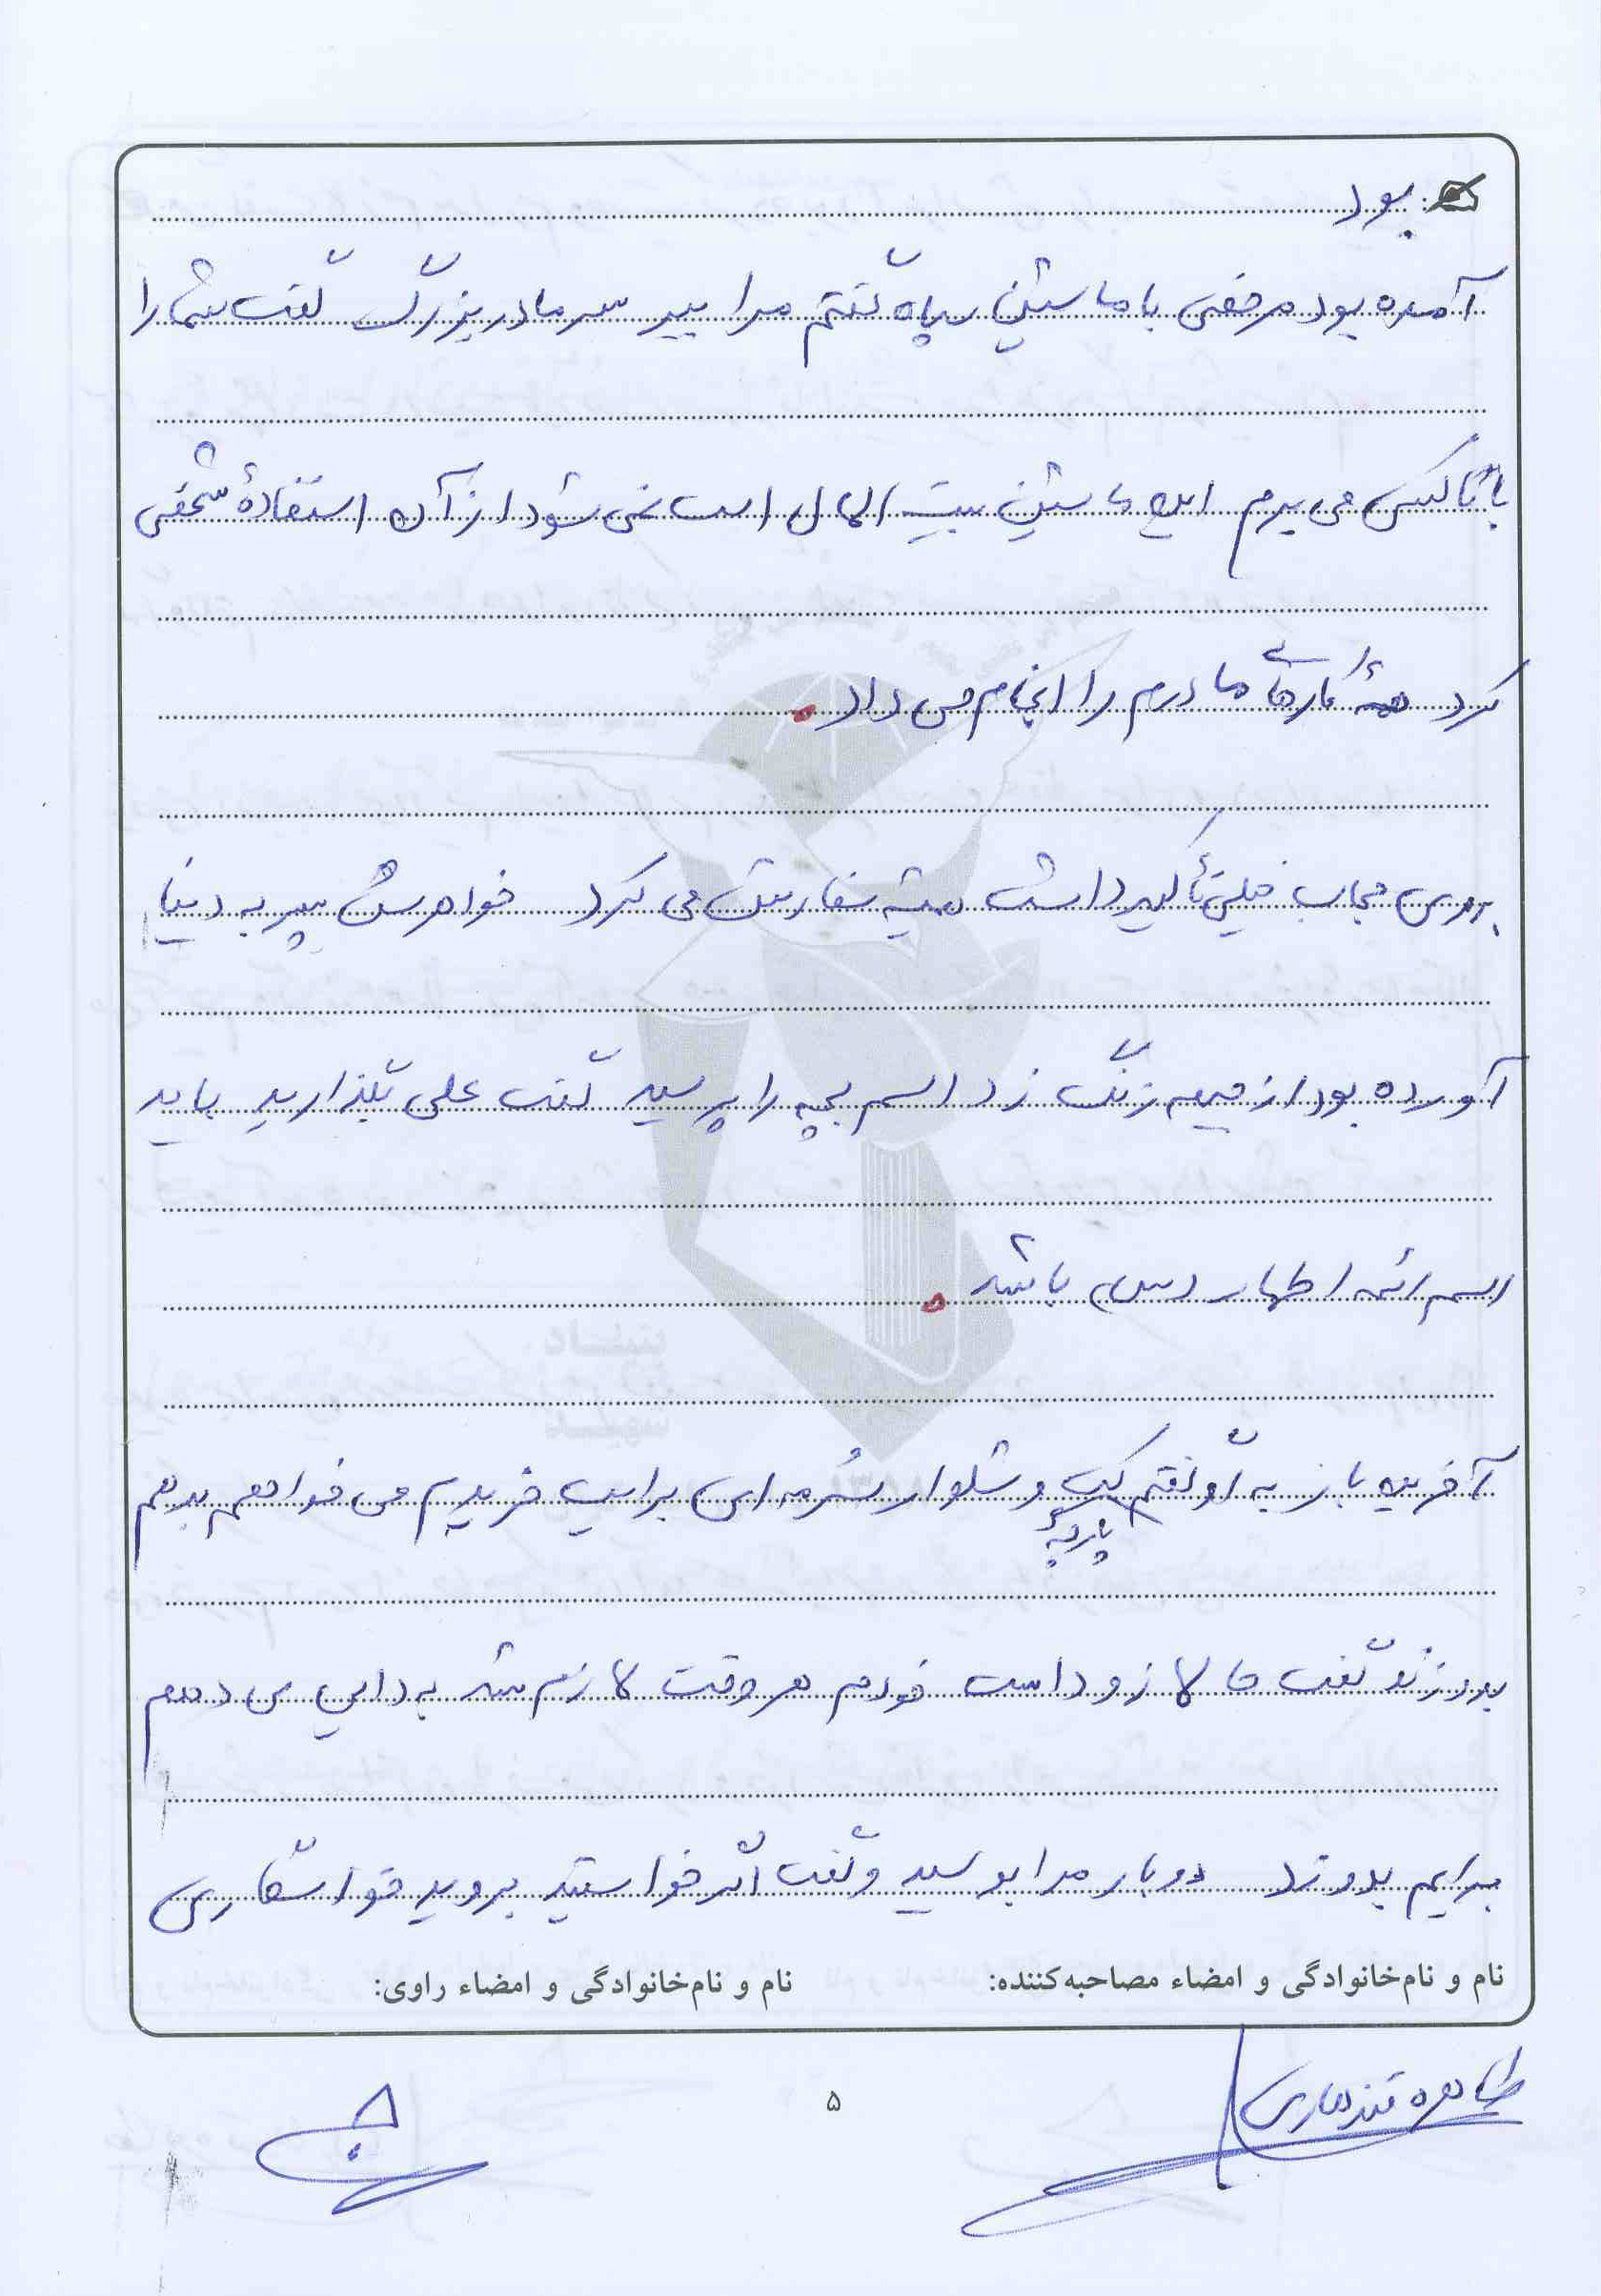 بود
آمده بود مرخصی با ماشین سپاه گفتم مرا ببر سر مادربزرگ گفت شما را
با تاکسی می برم این ماشین بیت المال است نمی شود از آن استفادهٔ شخصی
کرد همهٔ کارهای مادرم را انجام می داد.
بروی حجاب خیلی تأکید داشت همیشه سفارش می کرد خواهرش پسر به دنیا
آورده بود از جبهه زنگ زد اسم بچه را پرسید گفت علی بگذارید باید
اسم ائمه اطهار (س) باشد.
آخرین بار به او گفتم یک پارچهٔ کت و شلوار سُرمه ای برایت خریدم می خواهم بدهم
بدوزند گفت حالا زود است خودم هر وقت لازم شد به دایی می دهم
برایم بدوزد دوبار مرا بوسید و گفت اگر خواستید بروید خواستگاری
نام و نام‌خانوادگی و امضاء مصاحبه‌کننده:
نام و نام‌خانوادگی و امضاء راوی:
طاهره قندهاری
۵